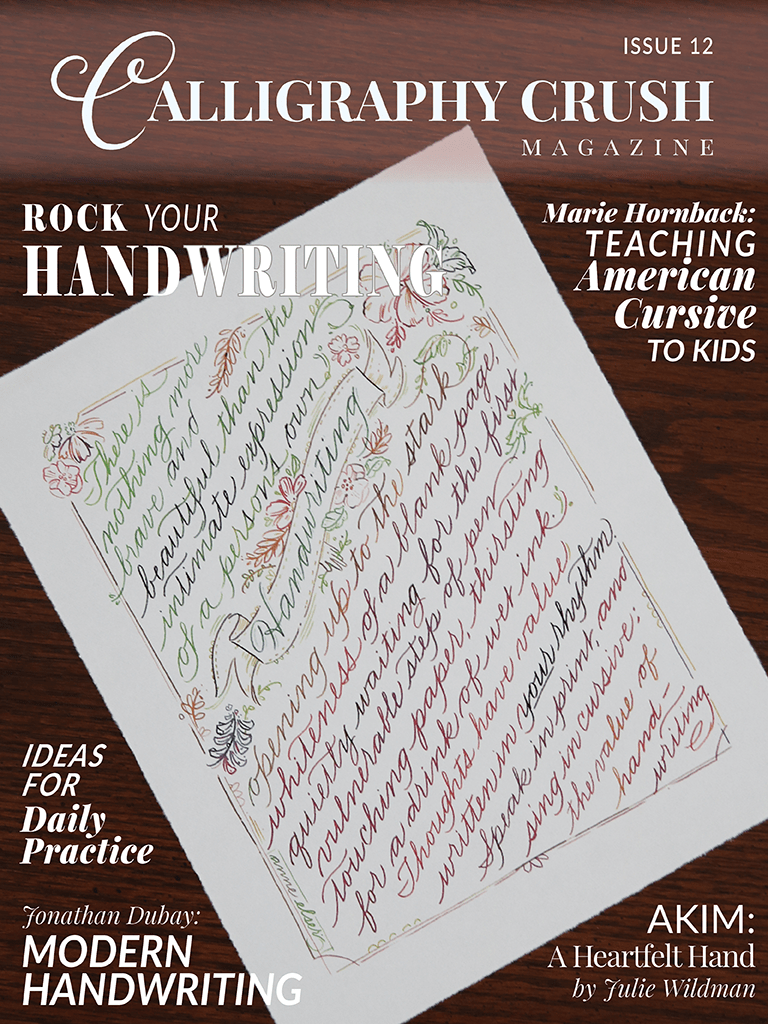 ISSUE 12
CALLIGRAPHY CRUSH
MAGAZINE
ROCK YOUR
HANDWRITING
Marie Hornback:
TEACHING
American
Cursive
TO KIDS
There is
nothing more
brave and
beautiful than the
intimate expression
of a person's own
Handwriting
Opening up to the stark
whiteness of a blank page,
quietly waiting for the first
vulnerable step of pen
touching paper, thirsting
for a drink of wet ink.
Thoughts have value
written in your rhythm.
Speak in print, and
sing in cursive:
the value of
hand-
writing
anne elser
IDEAS
FOR
Daily
Practice
Jonathan Dubay:
MODERN
HANDWRITING
AKIM:
A Heartfelt Hand
by Julie Wildman